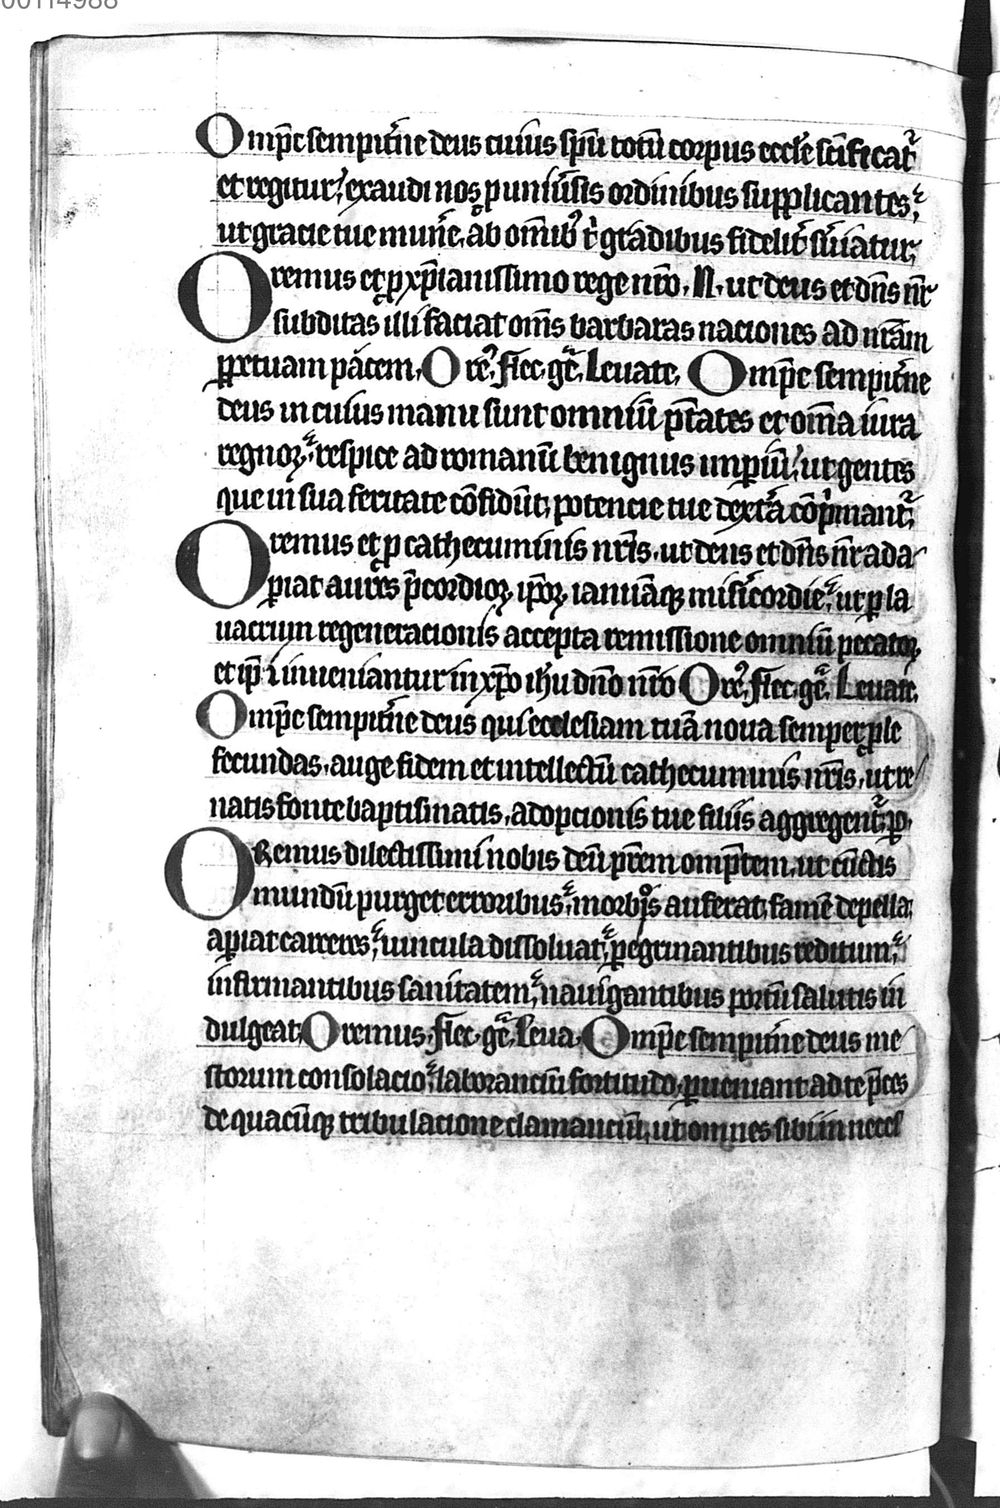 00114988
Omp̄c sempit̄ne deus cuius sp̄u totū corpus eccl̄e sc̄ificat᷑
et regitur, exaudi nos ꝓ uniūsis ordinibus supplicantes,
ut gracie tue mun̄e, ab om̄ib᷒ t̄ gradibus fidelit̄ s̄uiatur,
Oremus et ꝓ xp̄ianissimo rege nr̄o. N. ut deus et dn̄s nr̄
subditas illi faciat om̄s barbaras naciones ad nr̄am
ꝑpetuam pacem. Ore᷒. flec. gē. Leuate. Omp̄c sempit̄ne
deus in cuius manu sunt omniū p̄tates et om̄a iura
regnoꝝ, respice ad romanū benignus imꝑiū, ut gentes
que in sua feritate cōfidūt, potencie tue dext̄a cōp̄mant᷑,
Oremus et ꝓ cathecuminis nr̄is, ut deus et dn̄s nr̄ ada
ꝑiat aures p̄cordioꝝ ip̄oꝝ ianuāqꝫ mis̄icordie, ut ꝑ la
uacrum regeneracionis accepta remissione omniū peccatoꝝ
et ip̄i inueniantur in xp̄o ih̄u dn̄o nr̄o Ore᷒. flec. gē. Leuate.
Omp̄c sempit̄ne deus qui ecclesiam tuā noua semper ꝓle
fecundas, auge fidem et intellectū cathecuminis nr̄is, ut re
natis fonte baptismatis, adopcionis tue filiis aggregent᷑, ꝑ.
ORemus dilectissimi nobis deū pr̄em omp̄tem, ut cūctis
mundū purget erroribus, morbos auferat, famē depella
aꝑiat carceres, uincula dissoluat, ꝑegrinantibus reditum,
infirmantibus sanitatem, nauigantibus portū salutis in
dulgeat, Oremus. flec. gē. Leua. Omp̄c sempit̄ne deus me
storum consolacio, laboranciū fortitudo, ꝑueniant ad te p̄ces
de quacūqꝫ tribulacione clamanciū, ut omnes sibi in necces